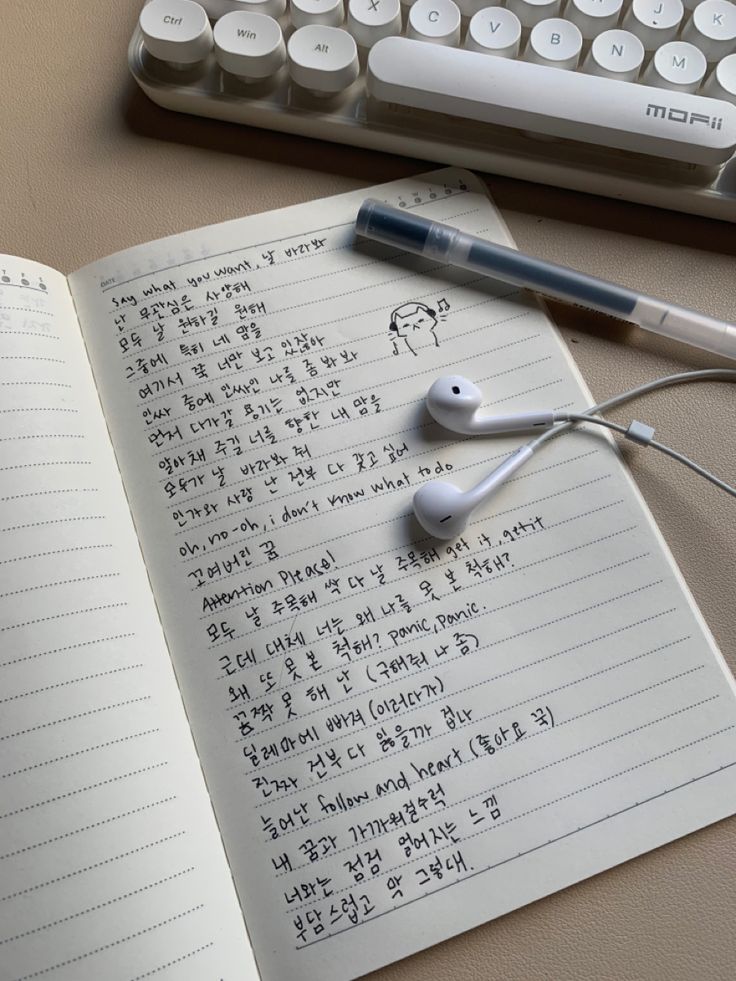 Ctrl
Win
Alt
X
C
V
B
N
M
J
K
MOFii
DATE
say what you want, 날 바라봐
난 무관심은 사양해
모두 날 원하길 원해
그중에 특히 네 맘을
여기서 쭉 너만 보고 있잖아
인싸 중에 인싸인 나를 좀 봐봐
먼저 다가갈 용기는 없지만
알아채 주길 너를 향한 내 맘을
모두가 날 바라봐 줘
인기와 사랑 난 전부 다 갖고 싶어
oh, no-oh, i don't know what to do
꼬여버린 꿈
Attention Please!
모두 날 주목해 싹 다 날 주목해 get it, get it
근데 대체 너는 왜 나를 못 본 척해?
왜 또 못 본 척해? panic, panic.
꼼짝 못 해 난 (구해줘 나 좀)
딜레마에 빠져 (이러다가)
진짜 전부 다 잃을까 겁나
늘어난 follow and heart (좋아요 꾹)
내 꿈과 가까워질수럭
너와는 점점 멀어지는 느낌
부담스럽고 막 그렇대.